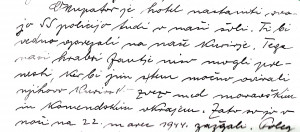 Okupator je hotel nastaniti svo-
jo SS policijo tudi v naši šoli. Ti bi
vedno opazovali na naše kurirje. Tega
naši hrabri fantje niso mogli pre-
nesti, ker bi jim s tem močno ovirali
njihov kurirski zvezo med moravškim
in Kamendskim okrajem. Zato so jo v
noči na 22. marec 1944. zažgali.